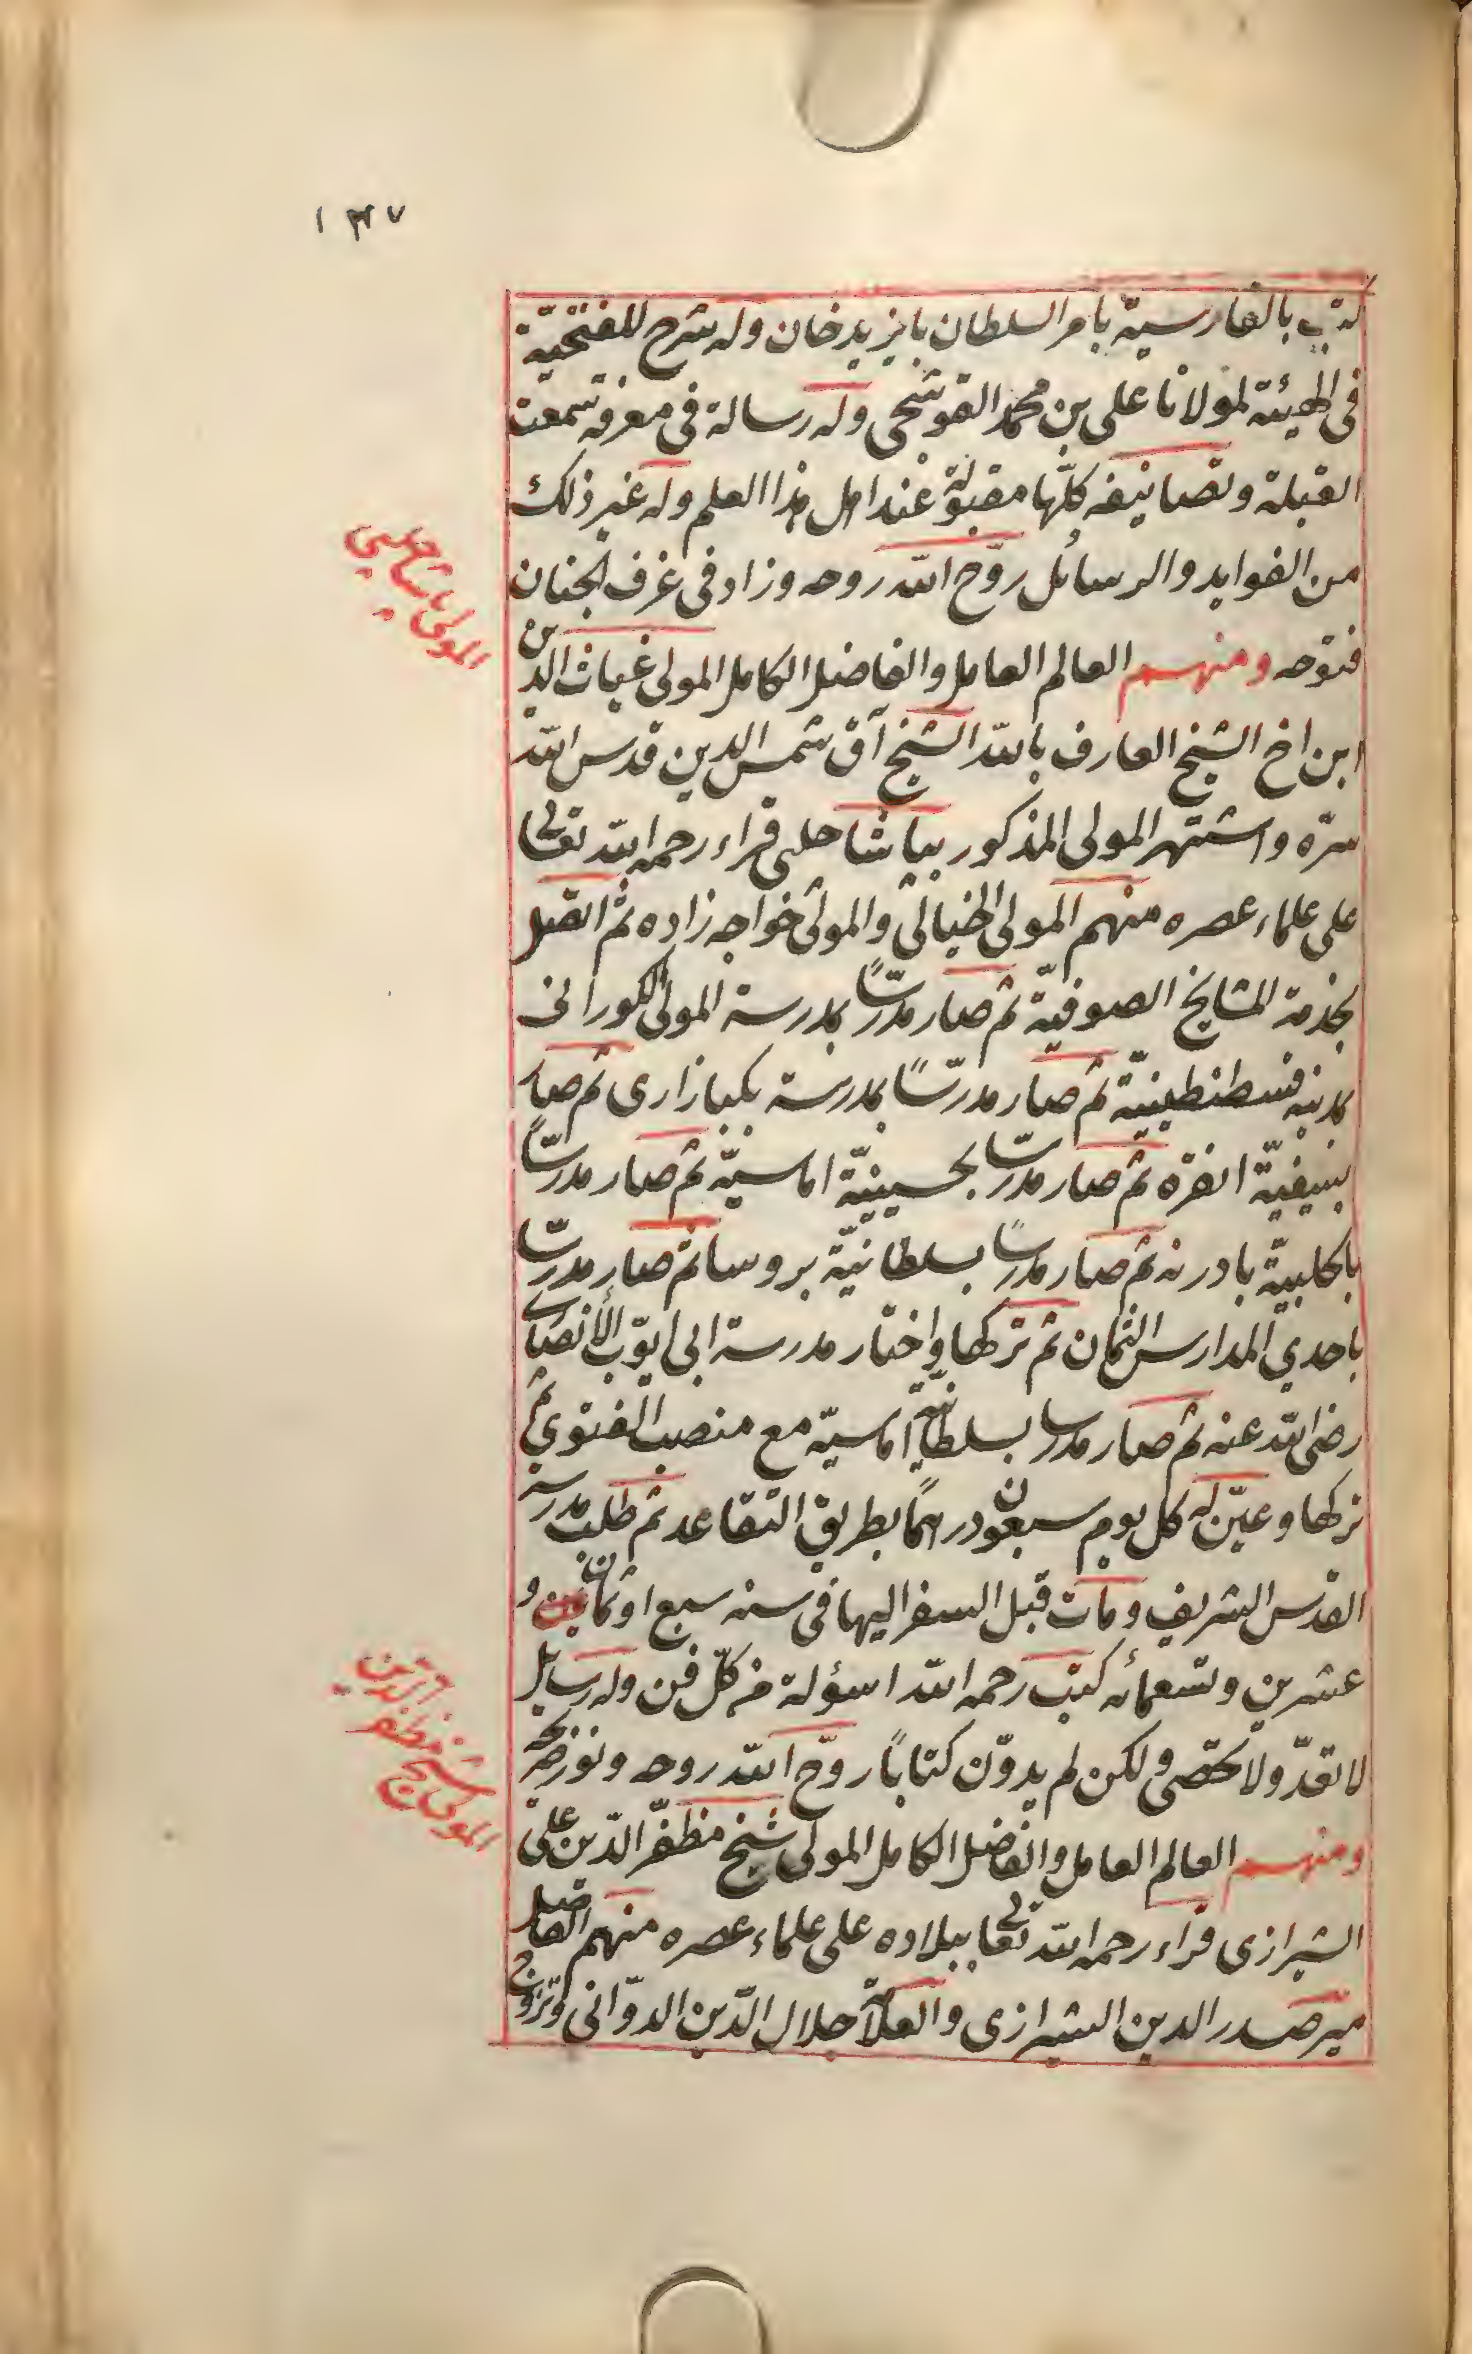 ١٣٧
كتب بالفارسية بامر السلطان بايزيد خان وله شرح للفتحية
فى الهيئة لمولانا على بن محمد القوشجى وله رسالة فى معرفة سمت
القبلة وتصانيفه كلّها مقبولة عند اهل هذا العلم وله غير ذلك
من الفوايد والرسائل روّح الله روحه وزاد فى غرف الجنان
فتوحه ومنهم العالم العامل والفاضل الكامل المولى غياث الدين
المولى پاشا چلبى
ابن اخ الشيخ العارف بالله الشيخ آق شمس الدين قدس الله
سرّه واشتهر المولى المذكور بپاشا چلبى قراء رحمه الله تعالى
على علماء عصره منهم المولى الخيالى والمولى خواجه زاده ثم اتصل
بخدمة المشايخ الصوفيّة ثم صار مدرّسًا بمدرسة المولى الكورانى
بمدينة قسطنطينيّة ثم صار مدرّسًا بمدرسة بكبازارى ثم صار
بسيفيّة انقره ثم صار مدرّسا بحسينيّة اماسيّة ثم صار مدرّسا
بالحلبيّة بادرنه ثم صار مدرسًا بسلطانيّة بروسا ثم صار مدرّسا
باحدي المدارس الثمان ثم تركها واختار مدرسة ابى ايّوب الأنصارى
رضى الله عنه ثم صار مدرسا بسلطانيّة اماسيّة مع منصب الفتوى ثم
تركها وعيّن له كل يوم سبعون درهمًا بطريق التقاعد ثم طلب مدرسة
القدس الشريف ومات قبل السفر اليها فى سنه سبع او ثمان و
عشرين وتسعمائه كتب رحمه الله اسؤلة من كلّ فن وله رسايل
لا تعدّ ولا تحصى ولكن لم يدوّن كتابًا روّح الله روحه ونور ضريحه
ومنهم العالم العامل والفاضل الكامل المولى شيخ مظفّر الدّين على
المولى شيخ مظفر الدين
الشيرازى قراء رحمه الله تعالى ببلاده على علماء عصره منهم الفاضل
مير صدر الدين الشيرازى والعلّامة جلال الدّين الدوّانى وتزوج